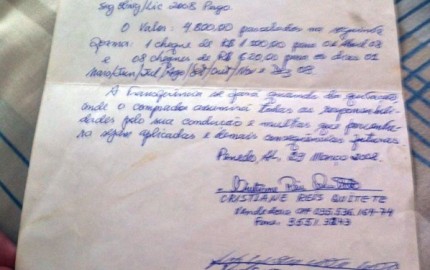 Seg Obrg/Lic 2008 Pago.
O Valor: 4.800,00 parcelados na seguinte
forma: 1 cheque de R$ para 08
e 08 cheques de R$ para o dia 02
Maio/Jun/Jul/Ago/Set/Out/Nov e Dez 08.
A transferência se dará quando for quitado,
onde o comprador assumirá todas as responsabili-
dades pela sua condução e multas que porventu-
ra sejam aplicadas e demais consequências futuras.
Penedo, AL. 29 Março
CRISTIANE REIS QUITETE
Vendedora
Fone: 3551.3243